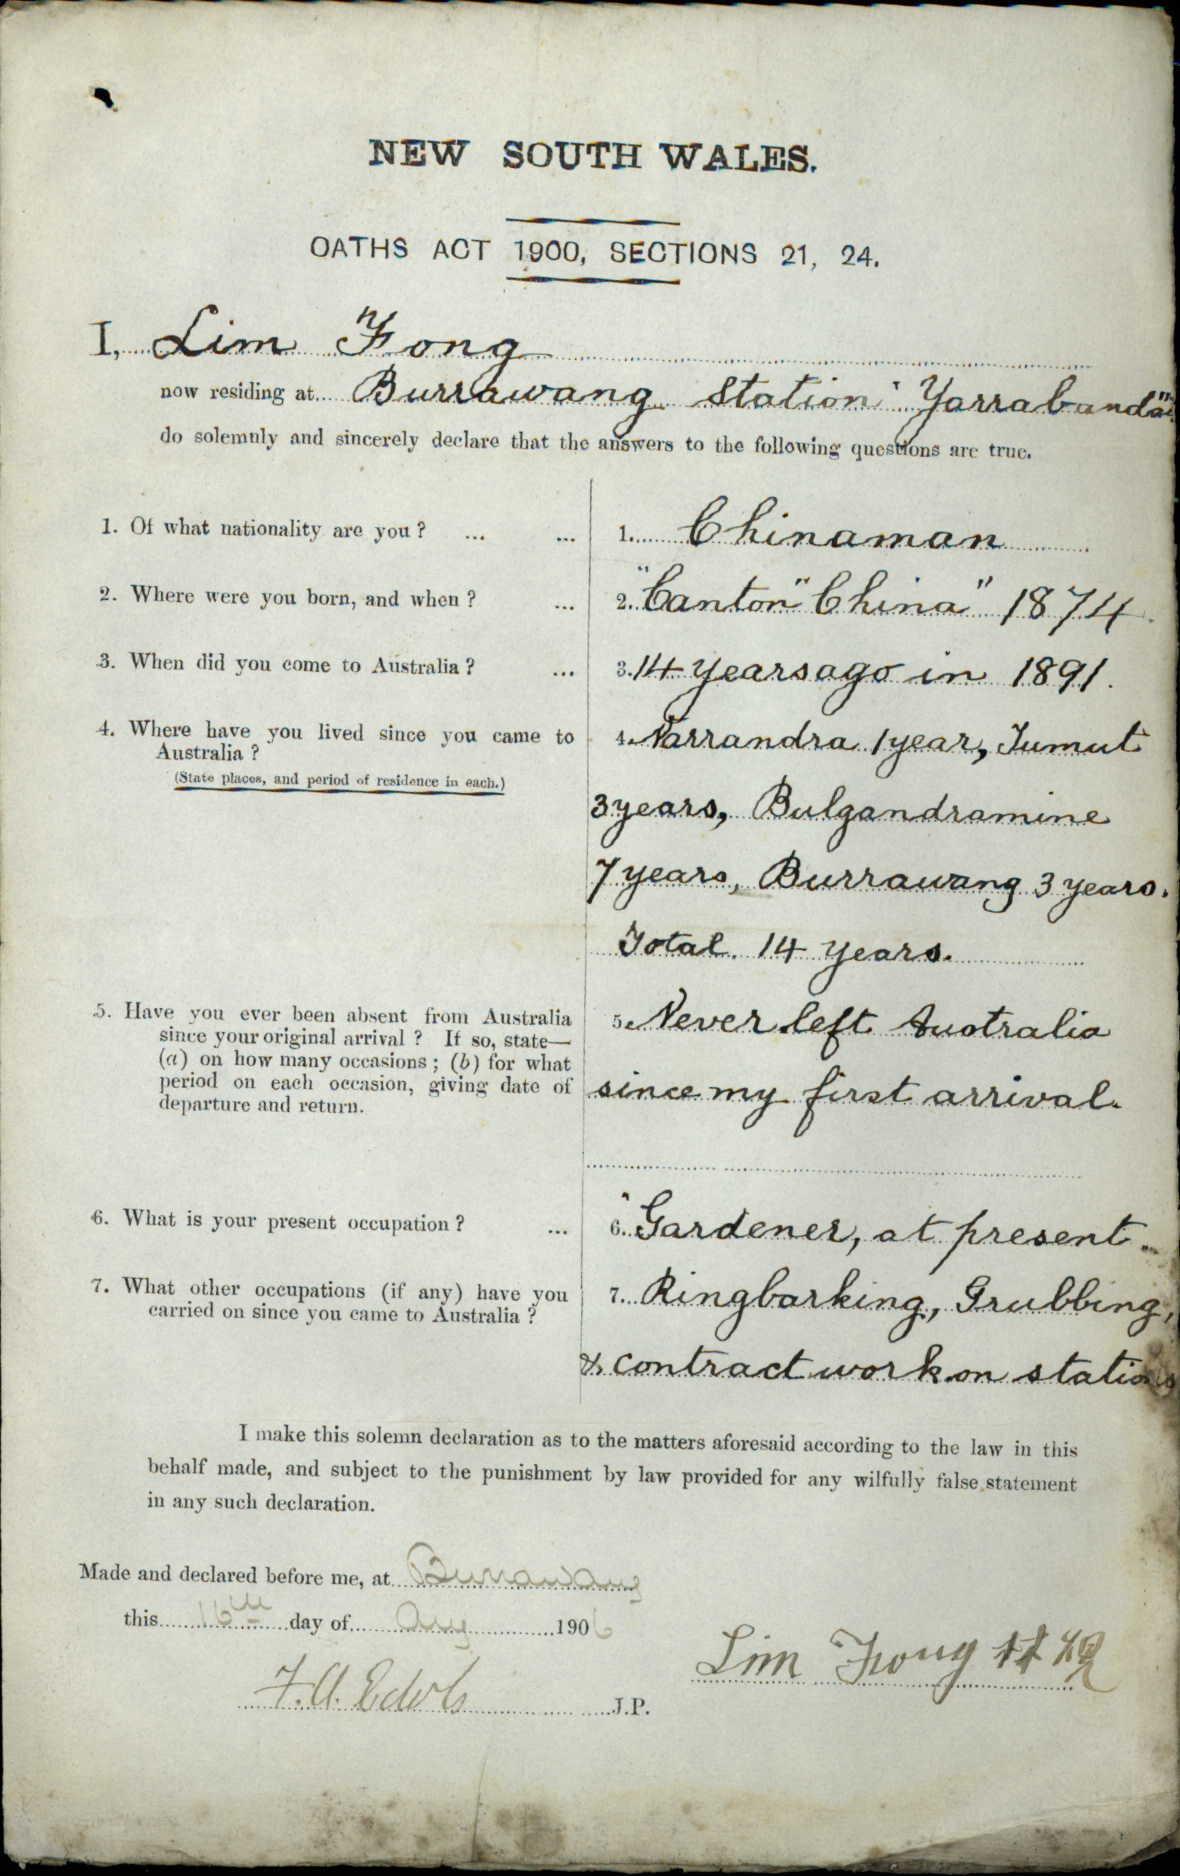 NEW SOUTH WALES.
OATHS ACT 1900, SECTIONS 21, 24.
I, Lim Fong
now residing at Burrawang Station "Yarrabandai"
do solemnly and sincerely declare that the answers to the following questions are true.
1. Of what nationality are you ? ... ... 1. Chinaman
2. Where were you born, and when ? ... 2. "Canton" China" 1874
3. When did you come to Australia ? ... 3. 14 years ago in 1891.
4. Where have you lived since you came to Australia ?
(State places, and period of residence in each.)
4. Narrandra 1 year, Tumut
3 years, Bulgandramine
7 years, Burrawang 3 years.
Total. 14 years.
5. Have you ever been absent from Australia
since your original arrival ? If so, state—
(a) on how many occasions ; (b) for what
period on each occasion, giving date of
departure and return.
5. Never left Australia
since my first arrival.
6. What is your present occupation ? ... 6. Gardener, at present
7. What other occupations (if any) have you
carried on since you came to Australia ?
7. Ringbarking, Grubbing,
& contract work on stations
I make this solemn declaration as to the matters aforesaid according to the law in this
behalf made, and subject to the punishment by law provided for any wilfully false statement
in any such declaration.
Made and declared before me, at Burrawang
this 16th day of Aug 1906
Lim Fong
F. A. Edols J.P.